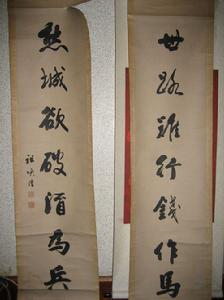 世路難行錢作馬
愁城欲破酒為兵